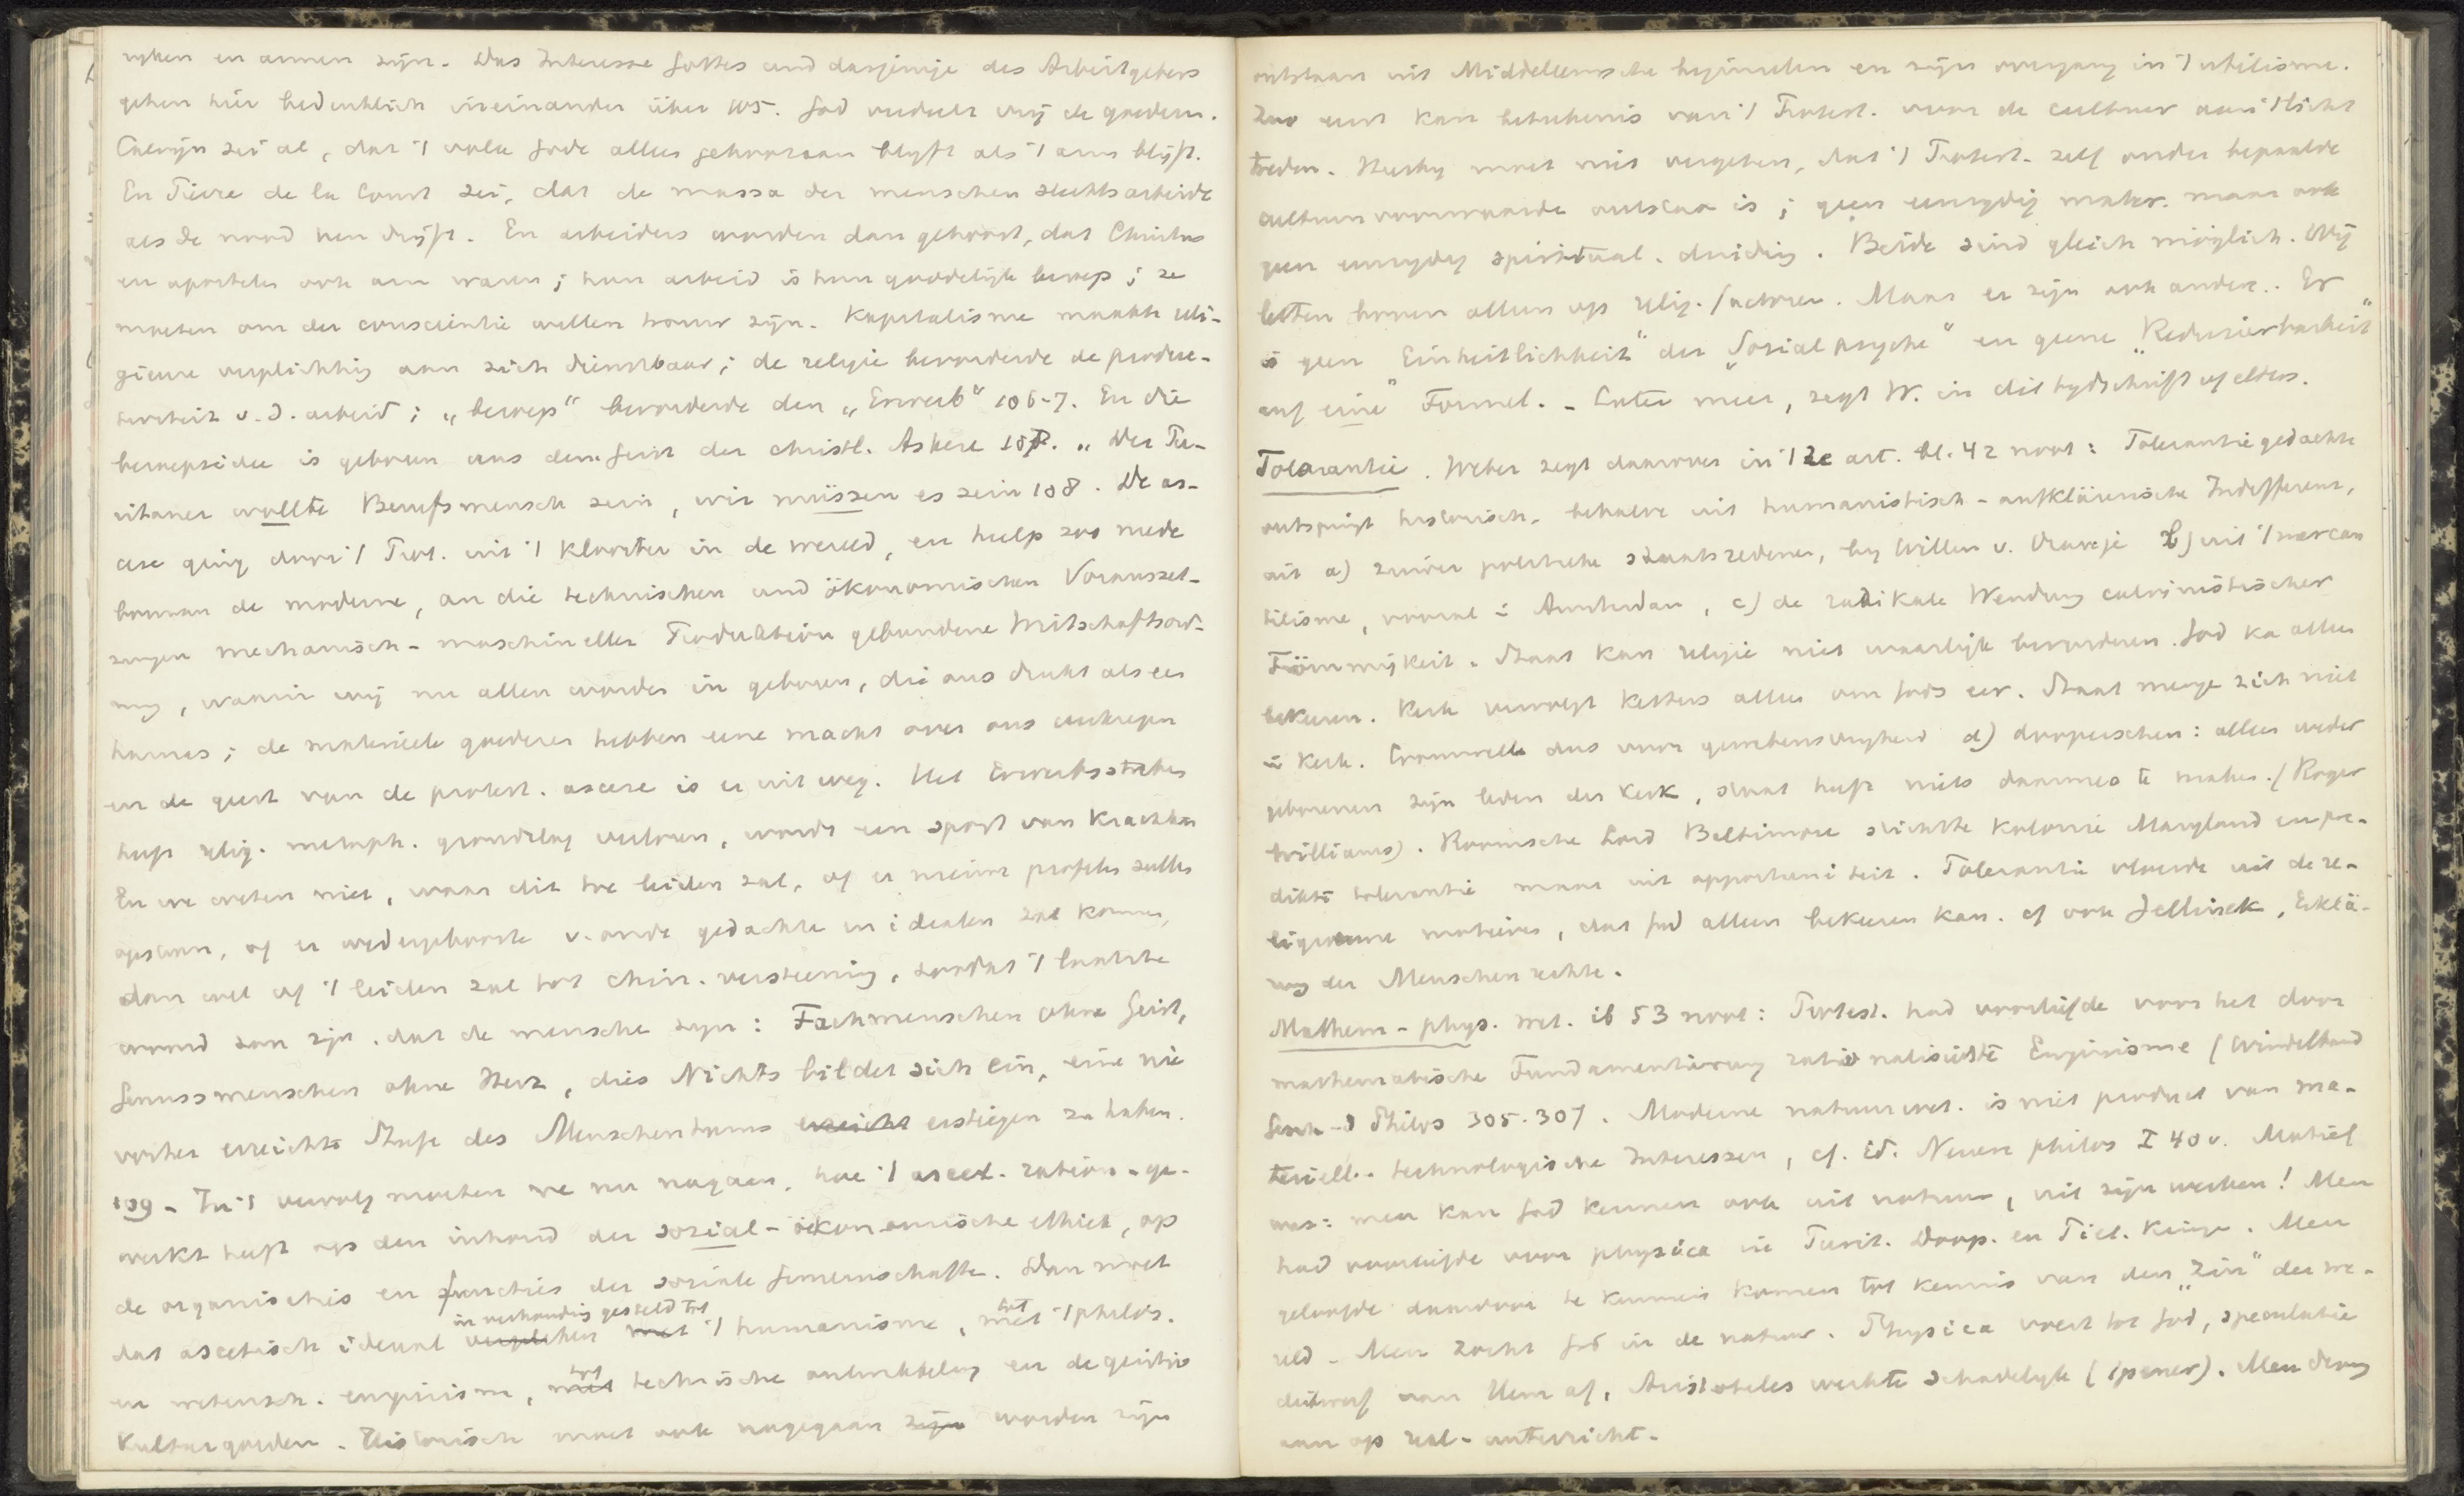 ryken en armen zijn. Das Interesse Gottes und dasjenige des Arbeitgebers
gehen hier bedenklich ineinander über 105. God verdeelt vrij de goederen.
Calvijn zei al, dat 't volk Gode alleen gehoorzaam blyft als 't arm blijft.
En Pierre de la Court zei, dat de massa der menschen slechts arbeidt
als de nood hen drijft. En arbeiders worden dan getroost, dat Christus
en apostelen ook arm waren; hun arbeid is hun goddelijk beroep; ze
moeten om der conscientie willen trouw zijn. Kapitalisme maakte reli-
gieuse verplichting aan zich dienstbaar; de religie bevorderde de produc-
tiviteit v. d. arbeid; „beroep" bevorderde den „Erwerb" 106-7. En die
beroepsidee is geboren aus dem Geist der christl. Askese 107. „Der Pu-
ritaner wollte Berufsmensch sein, wir müssen es sein 108. De as-
cese ging door 't Prot. uit 't klooster in de wereld, en hielp zoo mede
bouwen de moderne, an die technischen und ökonomischen Vorausset-
zungen mechanisch-maschineller Produktion gebundene Wirtschaftsord-
nung, waarin wij nu allen worden in geboren, die ons drukt als een
harnas; de materieele goederen hebben eene macht over ons verkregen
en de geest van de protest. ascese is er uit weg. Het Erwerbsstreben
heeft relig. metaph. grondslag verloren, wordt een sport van krachten
En we weten niet, waar dit toe leiden zal, of er nieuwe profeten zullen
opstaan, of er wedergeboorte v. oude gedachten en idealen zal komen,
dan wel of 't leiden zal tot chin. versteening, zoodat 't laatste
woord zou zijn, dat de menschen zyn: Fachmenschen ohne Geist,
Genussmenschen ohne Herz, dies Nichts bildet sich ein, eine nie
vorher erreichte Stufe des Menschentums erreicht erstiegen zu haben.
109 - In 't vervolg moeten we nu nagaan, hoe 't ascet. ration. ge-
werkt heeft op den inhoud der sozial-ökonomische ethiek, op
de organisaties en functies der soziale Gemeinschafte. Dan moet
dat ascetisch ideaal vergeleken in verhouding gesteld tot met 't humanisme, met tot 't philos.
en wetensch. empirisme, met tot technische ontwikkeling en de geistige
Kulturgoeden. Historisch moet ook nagegaan zijn worden zijn
ontstaan uit Middeleeuwsche beginselen en zijn overgang in 't utilisme.
Zoo eerst kan beteekenis van 't Protest. voor de cultuur aan 't licht
treden. Hierby moet niet vergeten, dat 't Protest. zelf onder bepaalde
cultuurvoorwaarde ontstaan is; geen eenzydig mater. maar ook
geen eenzydig spiritual. duiding. Beide sind gleich möglich. Wij
letten boven alleen op relig. factoren. Maar er zijn ook andere. Er
is geen „Einheitlichkeit" der „Sozialpsyche" en geene „Reduzierbarkeit"
auf eine" Formel. - Later meer, zegt W. in dit tydschrift of elders.
Tolerantie. Weber zegt daarover in 't 2e art. bl. 42 noot: Tolerantiegedachte
ontspringt historisch, behalve uit humanistisch-aufklärerische Indifferenz,
uit a) zuiver politieke staatsredenen, by Willem v. Oranje b) uit 't mercan
tilisme, vooral in Amsterdam, c) de radikale Wendung calvinistischer
Frömmigkeit. Staat kan religie niet waarlijk bevorderen. God ka alleen
bekeeren. Kerk vervolgt ketters alleen om Gods eer. Staat menge zich niet
in kerk. Cromwell dus voor gewetensvryheid d) doopersschen: alleen weder
geborenen zijn leden der kerk, staat heeft niets daarmee te maken. (Roger
Williams). Roomsche Lord Baltimore stichtte kolonie Maryland en pre-
dikte tolerantie maar uit opportuniteit. Tolerantie vloeide uit de re-
ligieuse motieven, dat God alleen bekeeren kan. cf ook Jellinek, Erklä-
rung der Menschenrechte.
Mathem-phys. wet. ib 53 noot: Protest. had voorliefde voor het door
mathematische Fundamentirung rationalisierte Empirisme (Windelband
Gesch. d Philos 305-307. Moderne natuurwet. is niet product van ma-
teriell.-technologische Interessen, cf. id. Neuere philos I 40 v. Motief
was: men kan God kennen ook uit natuur, uit zijn werken! Men
had voorliefde voor physica in Purit. Doop. en Piet. Kringe. Men
geloofde daardoor te kunnen komen tot kennis van den „zin" der we-
reld. Men zocht God in de natuur. Physica voert tot God, speculatie
dwaalt van Hem af, Aristoteles werkte schadelyk (Spener). Men drong
aan op real-unterricht.